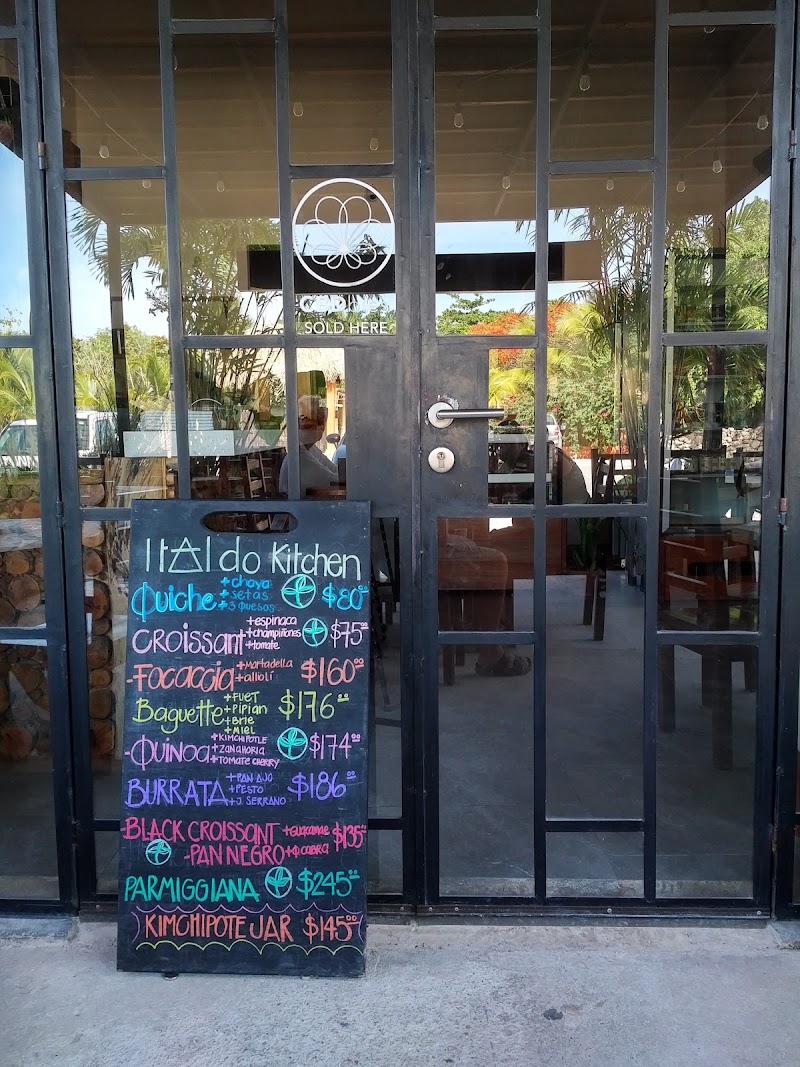 SOLD HERE
ITAL do Kitchen
Quiche +chaya +setas +3 Quesos $80
CROISSANT +espinaca +champiñones +tomate $75
-FOCACCIA +Mortadella +allioli $160.00
Baguette +FUET +PIPIAN +Brie +MIEL $176.00
-QUINOA +KIMCHIPOTLE +ZANAHORIA +TOMATE CHERRY $174.00
BURRATA +PAN AJO +PESTO +J. SERRANO $186.00
-BLACK CROISSANT +GUACAMOLE $135.00
-PAN NEGRO +Q CABRA
PARMIGGIANA $245.00
KIMCHIPOTE JAR $145.00